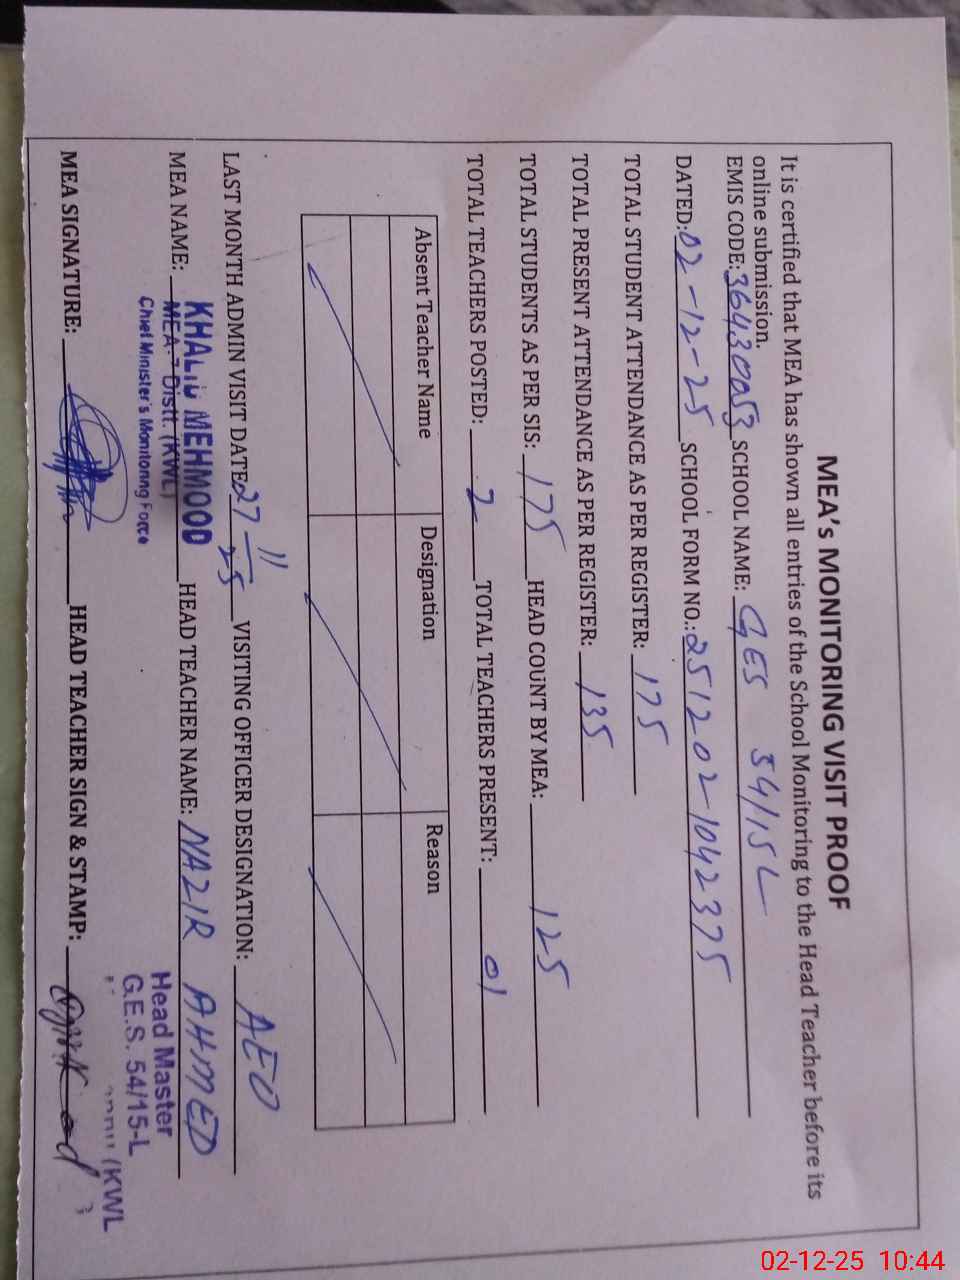 MEA's MONITORING VISIT PROOF
It is certified that MEA has shown all entries of the School Monitoring to the Head Teacher before its
online submission.
EMIS CODE: 36430053 SCHOOL NAME: GES 54/15L
DATED: 02-12-25 SCHOOL FORM NO.: 251202-1042375
TOTAL STUDENT ATTENDANCE AS PER REGISTER: 175
TOTAL PRESENT ATTENDANCE AS PER REGISTER: 135
TOTAL STUDENTS AS PER SIS: 175 HEAD COUNT BY MEA: 125
TOTAL TEACHERS POSTED: 2 TOTAL TEACHERS PRESENT: 01
Absent Teacher Name Designation Reason
LAST MONTH ADMIN VISIT DATE 27-11-25 VISITING OFFICER DESIGNATION: AEO
MEA NAME: KHALID MEHMOOD HEAD TEACHER NAME: NAZIR AHMED
MEA-7 Distt. (KWL)
Chief Minister's Monitoring Force
Head Master
G.E.S. 54/15-L
(KWL
MEA SIGNATURE: HEAD TEACHER SIGN & STAMP:
02-12-25 10:44